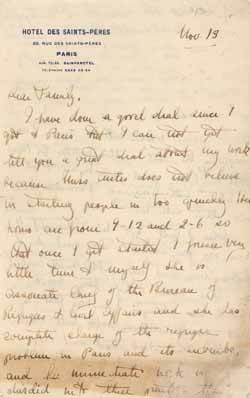 HOTEL DES SAINTS-PÈRES
65, RUE DES SAINTS-PÈRES
PARIS
Nov. 13
Dear Family,
I have done a good deal since I
got to Paris but I can not yet
tell you a great deal about my work
because Miss does not believe
in starting people in too quickly. Her
hours are from 9-12 and 2-6 so
that once I get started I foresee very
little time to myself. She is
Associate Chief of the Bureau of
Refugees & and she has
complete charge of the refugee
problem in Paris and its environs,
and her immediate work is
divided into three parts: